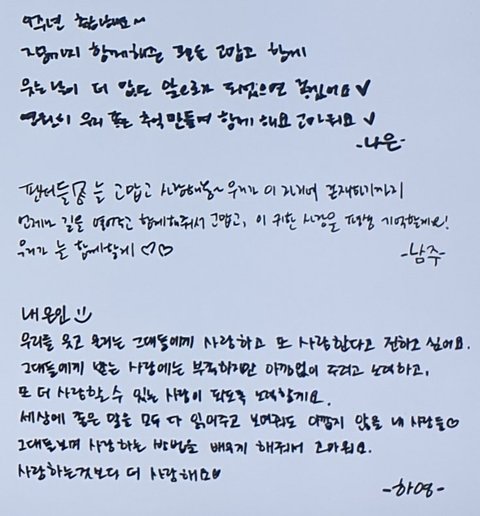 9주년 축하해요~
지금까지 함께해준 모든 고맙고 함께
웃는날이 더 많은 앞으로가 되었으면 좋겠어요♥
영원히 우리 좋은 추억 만들며 함께 해요 고마워요♥
-나은-
팬더들 늘 고맙고 사랑해용~ 우리가 이 자리에 존재하기까지
언제나 길을 열어주고 함께해줘서 고맙고, 이 귀한 시간을 평생 기억할게요!
우리가 늘 함께할게 ♡♡
-남주-
내 온인 :)
우리를 웃고 울리는 그대들에게 사랑하고 또 사랑한다고 전하고 싶어요.
그대들에게 받는 사랑에는 부족하지만 아낌없이 주려고 노력하고,
또 더 사랑할 수 있는 사람이 되도록 노력할게요.
세상에 좋은 말을 모두 다 읽어주고 보여줘도 아깝지 않을 내 사람들♡
그대들보며 사랑하는 방법을 배우게 해줘서 고마워요.
사랑하는것보다 더 사랑해요♥
-하영-